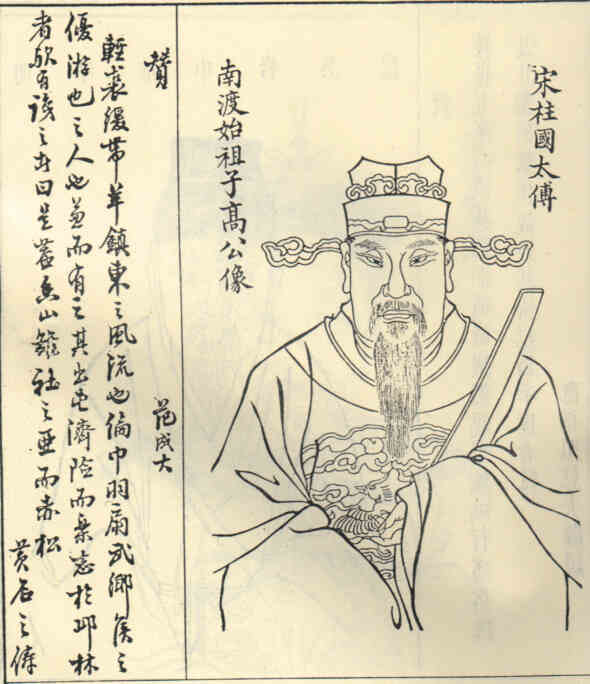 宋柱國太傅
南渡始祖子高公像
贊 范成大
輕裘緩帶羊鎮東之風流也綸巾羽扇武鄉侯之
優游也之人也兼而有之其出屯濟險而樂志於邱林
者歟有之曰是蓋香山雒社之亞而赤松黃石之儔